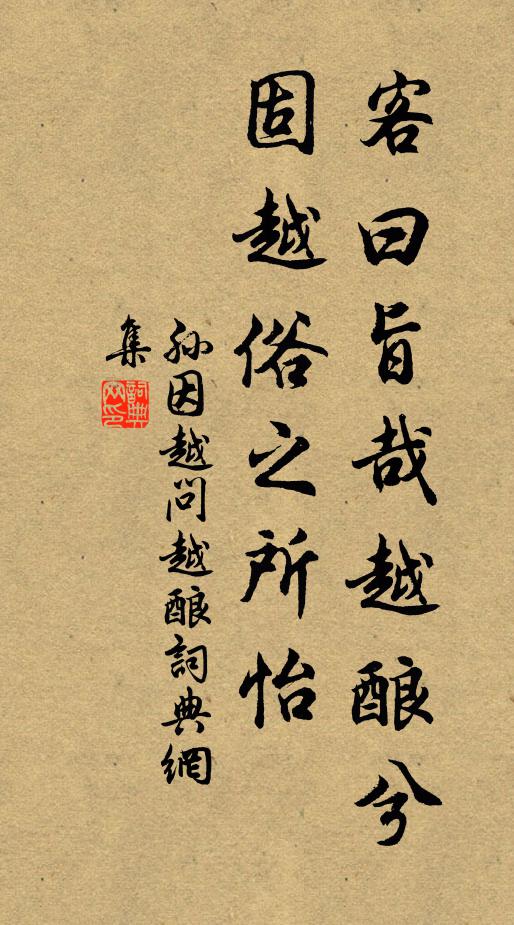 客曰旨哉越酿兮
固越俗之所怡
孙因越问越酿詞典網
集
詞典網印